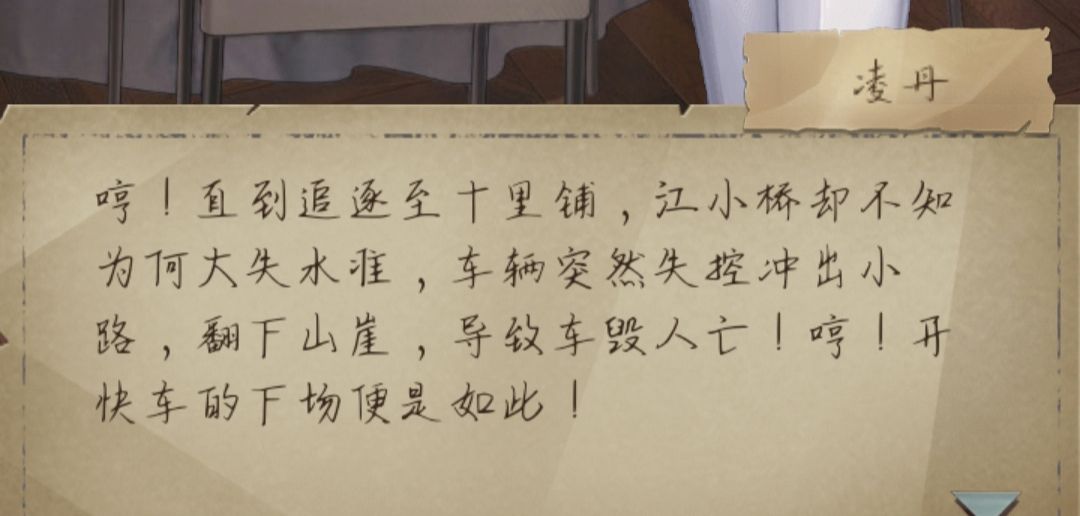 凌丹
哼！直到追逐至十里铺，江小桥却不知
为何大失水准，车辆突然失控冲出小
路，翻下山崖，导致车毁人亡！哼！开
快车的下场便是如此！